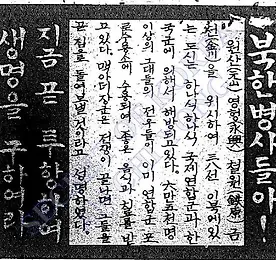 북한병사들아!
원산(元山) 영흥(永興) 철원(鐵原) 금
천(金川)을 위시하여 三八선 이북에있
는 도시는 한식한식 국제연합군과 한
국군에 의해서 해방되고있다. 六만五천명
이상의 그대들의 전우들이 이미 연합군 포
로수용소에 수용되여 좋은 음식과 친절을 받
고있다. 맥아더장군은 전쟁이 끝나면 그들을
곧 집으로 돌여보낼것이라고 성명하였다.
지금 곧 투항하여
생명을 구하여라